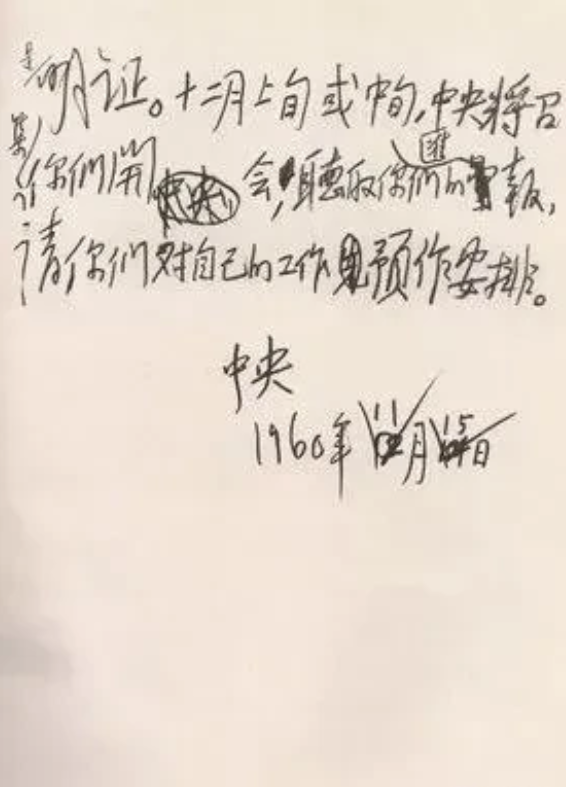 是明证。十二月上旬或中旬，中央將召
集你們開会，聽取你們的匯報，
请你们对自己的工作预作安排。
中央
1960年11月15日